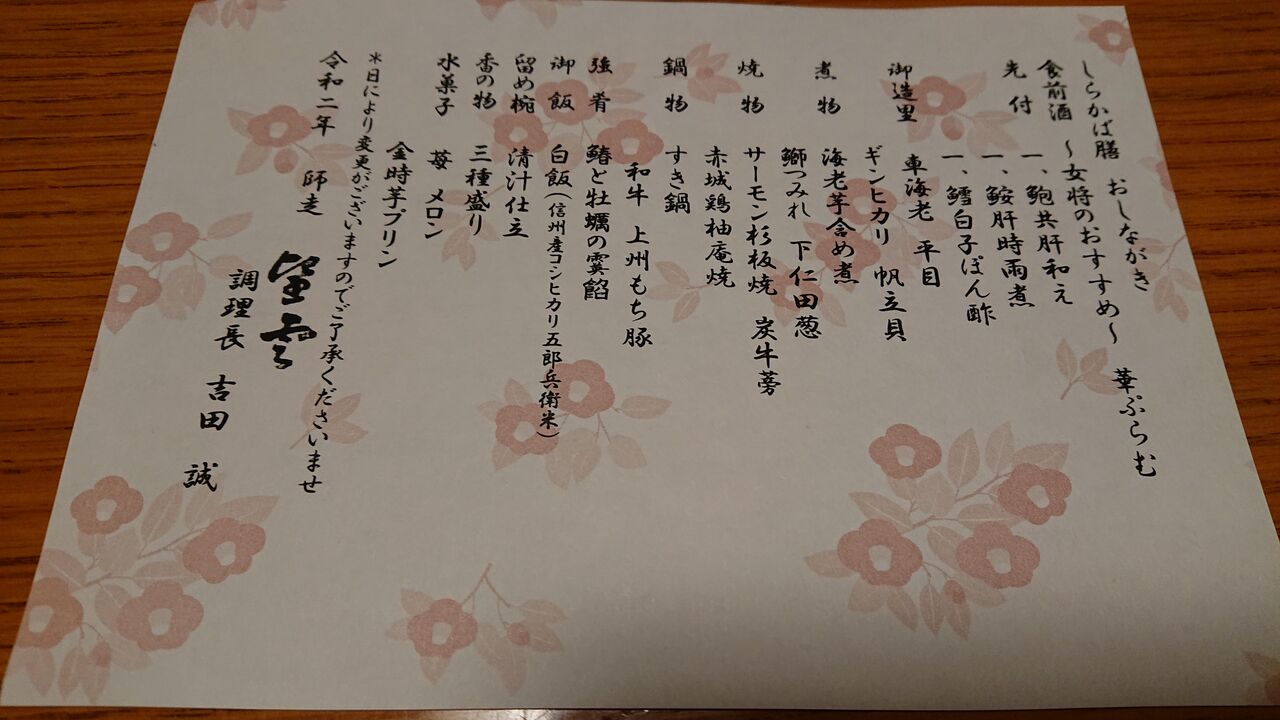 しらかば膳　おしながき
食前酒　～女将のおすすめ～　華ぷらむ
先付　一、鮑共肝和え
一、鮟肝時雨煮
一、鱈白子ぽん酢
御造里　車海老　平目
ギンヒカリ　帆立貝
煮物　海老芋含め煮
鰤つみれ　下仁田葱
焼物　サーモン杉板焼　炭牛蒡
赤城鶏柚庵焼
鍋物　すき鍋
和牛　上州もち豚
強肴　鰆と牡蠣の霙餡
御飯　白飯（信州産コシヒカリ五郎兵衛米）
留め椀　清汁仕立
香の物　三種盛り
水菓子　苺　メロン
金時芋プリン
＊日により変更がございますのでご了承くださいませ
令和二年　師走
望雲
調理長　吉田　誠